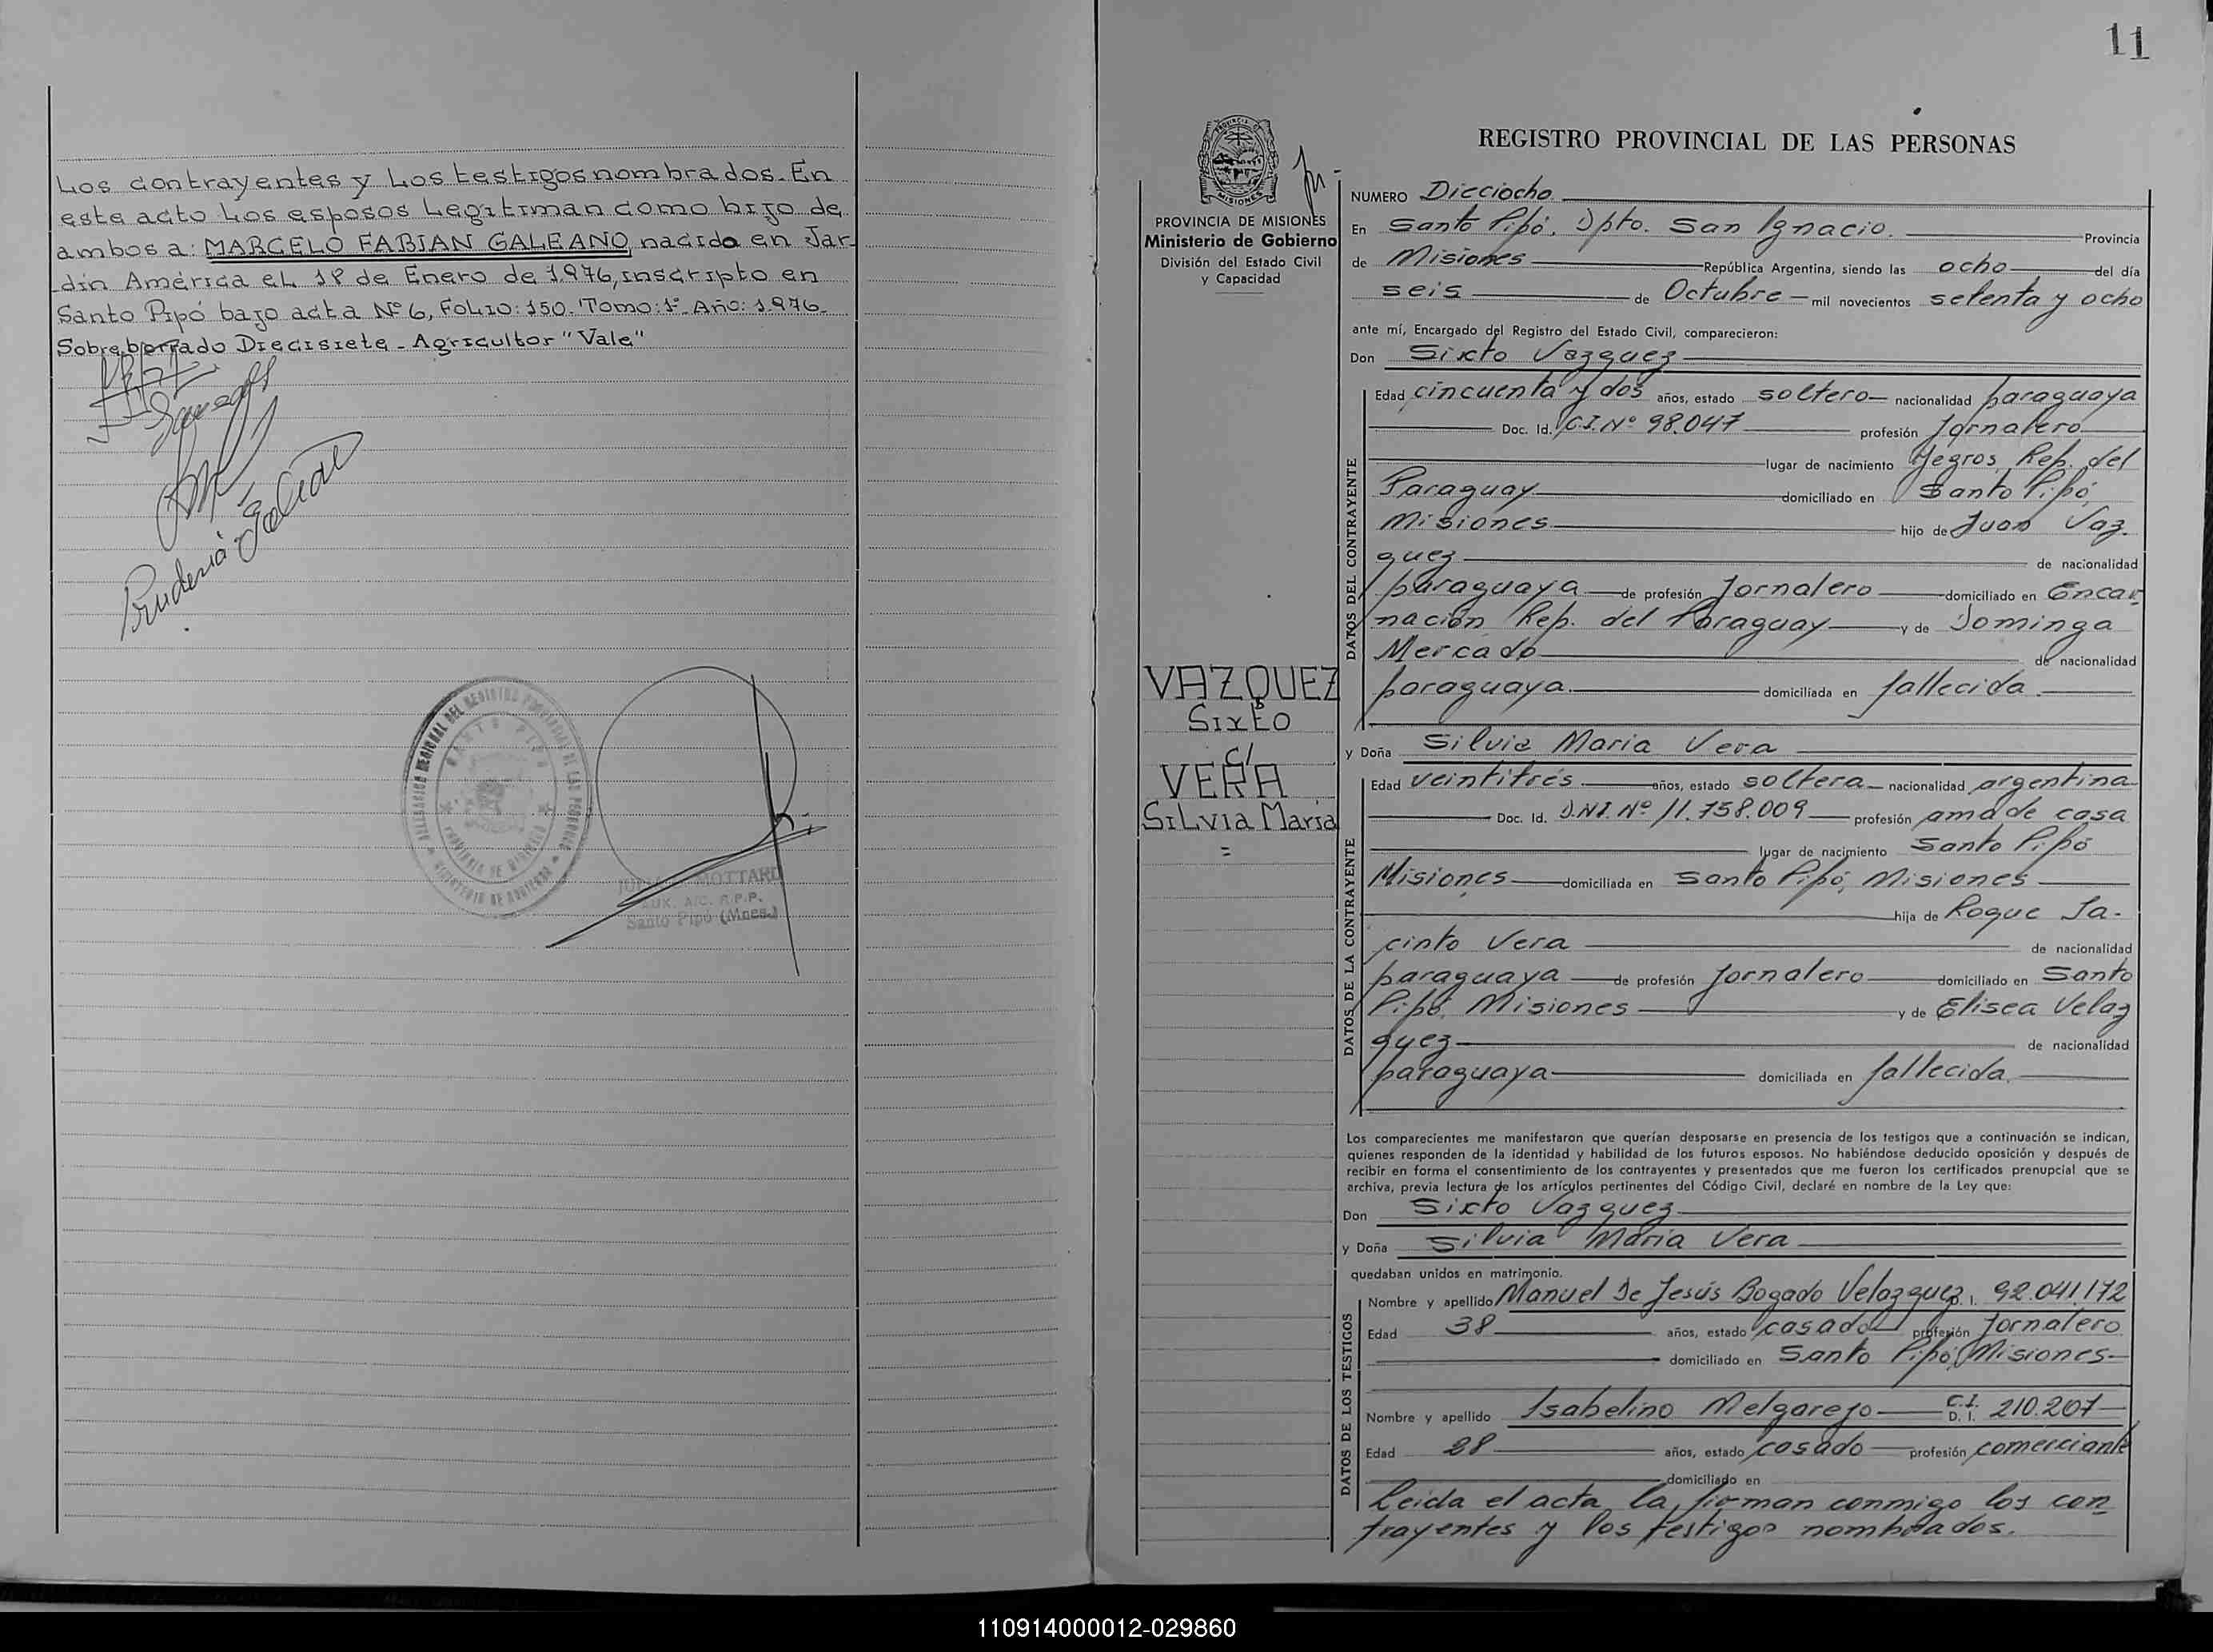 Los contrayentes y Los testigos nombrados. En
este acto Los esposos Legitiman como hijo de
ambos a: MARCELO FABIAN GALEANO, nacido en Jar-
din América el 18 de Enero de 1.976, inscripto en
Santo Pipó bajo acta Nº 6, Folio: 150. Tomo: 1º. Año: 1.976.
Sobre borrado Diecisiete - Agricultor "Vale"
Prudencia Galeano
DELEGACION REGIONAL DEL REGISTRO PROVINCIAL DE LAS PERSONAS
SANTO PIPO
PROVINCIA DE MISIONES
MINISTERIO DE GOBIERNO
MOTTARD
AUX. A/C. R.P.P.
Santo Pipó (Mnes.)
11
PROVINCIA DE
MISIONES
PROVINCIA DE MISIONES
Ministerio de Gobierno
División del Estado Civil
y Capacidad
VAZQUEZ
Sixto
c/
VERA
Silvia María
=
REGISTRO PROVINCIAL DE LAS PERSONAS
NUMERO Dieciocho
En Santo Pipó, Dpto. San Ignacio. Provincia
de Misiones República Argentina, siendo las ocho del día
seis de Octubre mil novecientos setenta y ocho
ante mí, Encargado del Registro del Estado Civil, comparecieron:
Don Sixto Vazquez
DATOS DEL CONTRAYENTE
Edad cincuenta y dos años, estado soltero nacionalidad paraguaya
Doc. Id. C.I. Nº 98.047 profesión Jornalero
lugar de nacimiento Yegros, Rep. del
Paraguay domiciliado en Santo Pipó,
Misiones hijo de Juan Vaz-
quez de nacionalidad
paraguaya de profesión Jornalero domiciliado en Encar-
nación Rep. del Paraguay y de Dominga
Mercado de nacionalidad
paraguaya. domiciliada en fallecida.
y Doña Silvia Maria Vera
DATOS DE LA CONTRAYENTE
Edad veintitrés años, estado soltera nacionalidad argentina
Doc. Id. D.N.I. Nº 11.758.009 profesión ama de casa
lugar de nacimiento Santo Pipó
Misiones domiciliada en Santo Pipó, Misiones
hija de Roque Ja-
cinto Vera de nacionalidad
paraguaya de profesión Jornalero domiciliado en Santo
Pipó, Misiones y de Elisea Velaz
quez de nacionalidad
paraguaya domiciliada en fallecida.
Los comparecientes me manifestaron que querían desposarse en presencia de los testigos que a continuación se indican,
quienes responden de la identidad y habilidad de los futuros esposos. No habiéndose deducido oposición y después de
recibir en forma el consentimiento de los contrayentes y presentados que me fueron los certificados prenupcial que se
archiva, previa lectura de los artículos pertinentes del Código Civil, declaré en nombre de la Ley que:
Don Sixto Vazquez
y Doña Silvia Maria Vera
quedaban unidos en matrimonio.
DATOS DE LOS TESTIGOS
Nombre y apellido Manuel De Jesús Bogado Velazquez D. I. 92.041.172
Edad 38 años, estado casado profesión Jornalero
domiciliado en Santo Pipó, Misiones
Nombre y apellido Isabelino Melgarejo C.I. D. I. 210.207
Edad 28 años, estado casado profesión comerciante
domiciliado en
Leida el acta, la firman conmigo los con
trayentes y los testigos nombrados.
110914000012-029860